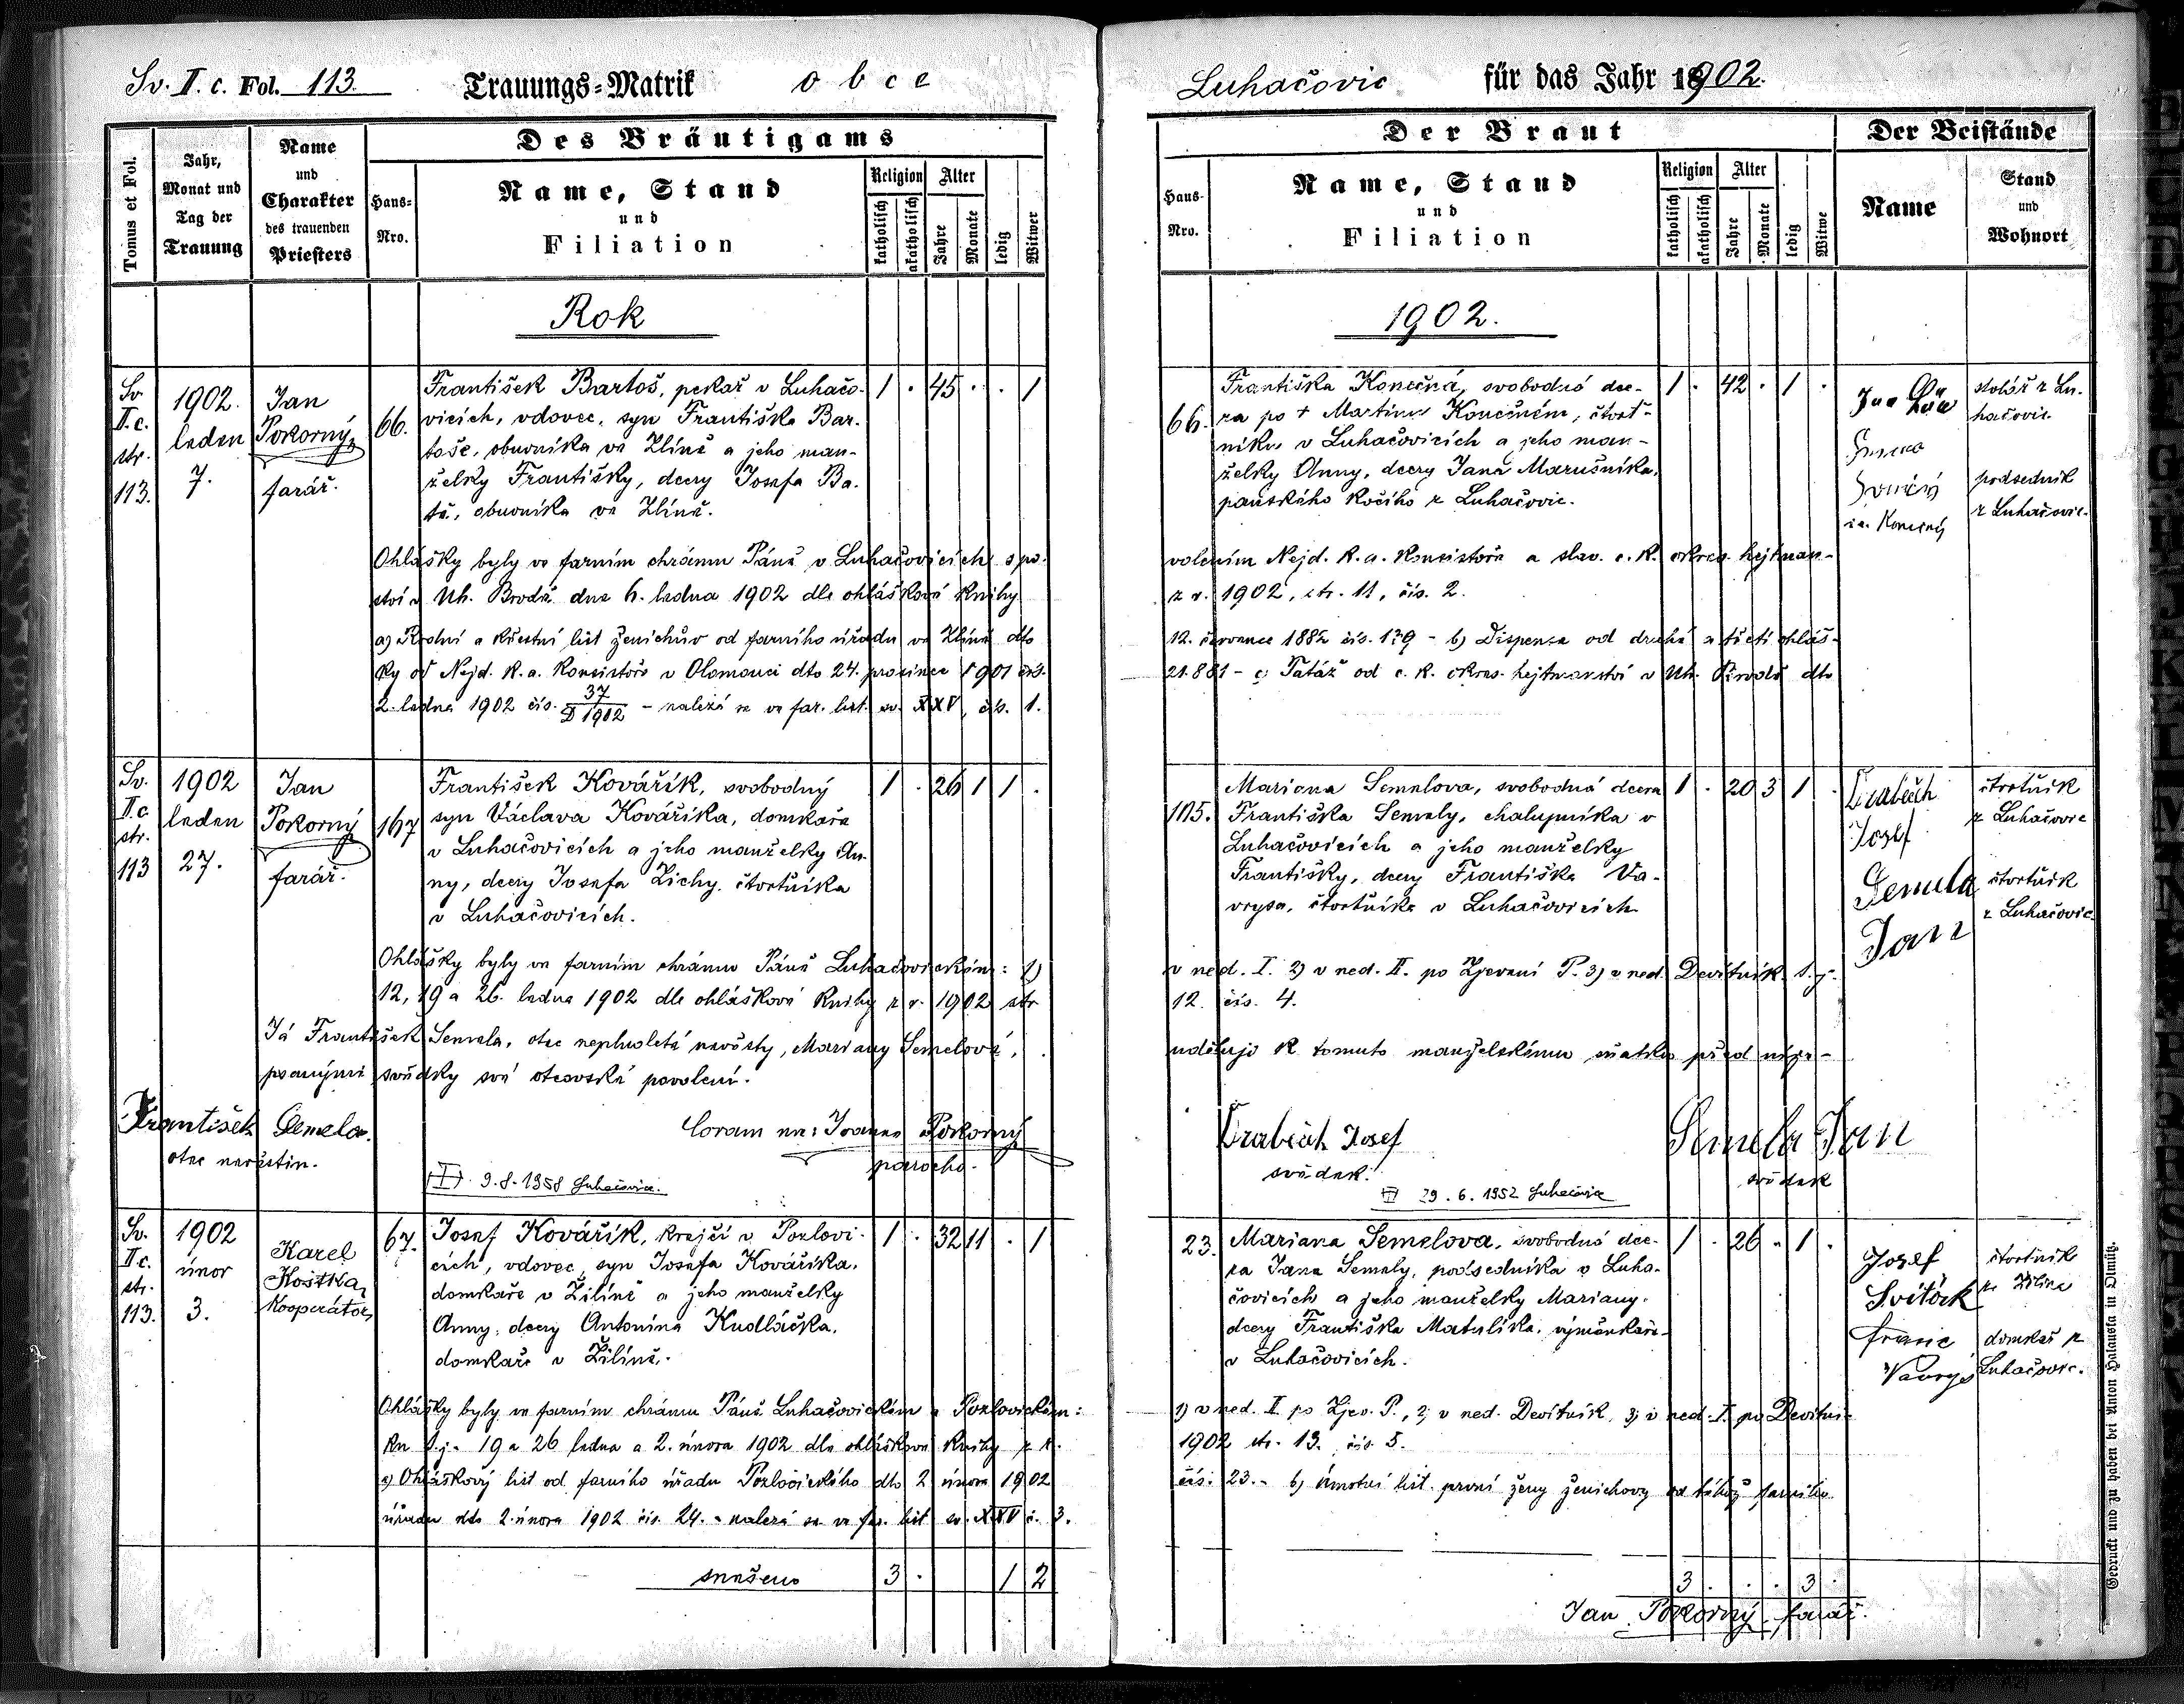 Sv. II. c. Fol. 113.
Trauungs-Matrik obce
Luhačovic für das Jahr 1902.
Tomus et Fol.
Jahr, Monat und Tag der Trauung
Name und Charakter des trauenden Priesters
Des Bräutigams
Haus-Nro.
Name, Stand und Filiation
Religion
katholisch
akatholisch
Alter
Jahre
Monate
ledig
Witwer
Der Braut
Haus-Nro.
Name, Stand und Filiation
Religion
katholisch
akatholisch
Alter
Jahre
Monate
ledig
Witwe
Der Beistände
Name
Stand und Wohnort
Rok
1902.
Sv. II. c. str. 113.
1902. leden 7.
Jan Pokorný, farář.
66.
František Bartoš, pekař v Luhačo-
vicích, vdovec, syn Františka Bar-
toše, obuvníka ve Zlíně a jeho man-
želky Františky, dcery Josefa Ba-
tě, obuvníka ve Zlíně.
1 . 45 . . 1
66.
Františka Konečná, svobodná dce-
ra po + Martinu Konečném, čtvrt-
níku v Luhačovicích a jeho man-
želky Anny, dcery Jana Marušníka,
panského kočího z Luhačovic.
1 . 42 . 1 .
Jan
stolář z Lu-
hačovic
Konečný
podsedník
z Luhačovic.
Ohlášky byly ve farním chrámu Páně v Luhačovicích s po-
volením Nejd. k. a. Konsistoře a slav. c. k. okres. hejtman-
ství v Uh. Brodě dne 6. ledna 1902 dle ohláškové knihy
z r. 1902, str. 11, čís. 2.
a) Rodní a křestní list ženichův od farního úřadu ve Zlíně dto
12. července 1882 čís. 179 - b) Dispensa od druhé a třetí ohláš-
ky od Nejd. k. a. Konsistoře v Olomouci dto 24. prosince 1901 čís.
21.881 - c) Tatáž od c. k. okres. hejtmanství v Uh. Brodě dto
2. ledna 1902 čís. 37/D 1902 - nalezá se ve far. list. sv. XXV, čís. 1.
Sv. II. c. str. 113
1902 leden 27.
Jan Pokorný farář.
167
František Kovářík, svobodný
syn Václava Kovaříka, domkaře
v Luhačovicích a jeho manželky An-
ny, dcery Josefa Zichy, čtvrtníka
v Luhačovicích.
1 . 26 1 1 .
105.
Mariana Semelova, svobodná dcera
Františka Semely, chalupníka v
Luhačovicích a jeho manželky
Františky, dcery Františka Va-
vrysa, čtvrtníka v Luhačovicích
1 . 20 3 1 .
Josef
čtvrtník
z Luhačovic
Semela
Jan
čtvrtník
z Luhačovic
Ohlášky byly ve farním chrámu Páně Luhačovickém: 1)
v ned. I. 2) v ned. II. po Zjevení P. 3) v ned. Devítník t. j.
12, 19 a 26. ledna 1902 dle ohláškové knihy z r. 1902 str
12. čís. 4.
Já František Semela, otec neplnoleté nevěsty, Mariany Semelové,
uděluji k tomuto manželskému sňatku před níže-
psanými svědky své otcovské povolení.
František Semela.
otec nevěstin.
Coram me: Joanne Pokorný
parocho.
Josef
svědek.
Semela Jan
svědek
9.8.1958 Luhačovice.
29.6.1952 Luhačovice
Sv. II. c. str. 113.
1902 únor 3.
Karel Kostka, Kooperátor,
67.
Josef Kovářík, krejčí v Pozlovi-
cích, vdovec, syn Josefa Kovaříka,
domkaře v Žilíně a jeho manželky
Anny, dcery Antonína Kudláčka,
domkaře v Žilíně.
1 . 32 11 . 1
23.
Mariana Semelova, svobodná dce-
ra Jana Semely, podsedníka v Luha-
čovicích a jeho manželky Mariany,
dcery Františka Matulíka, výměnkaře
v Luhačovicích.
1 . 26 - 1 .
Josef
Svitörk
čtvrtník
domkař z
Luhačovic.
Ohlášky byly ve farním chrámu Páně Luhačovickém a Pozlovickém:
1) v ned. II. po Zjev. P., 2) v ned. Devítník, 3) v ned. I. po Devítní-
ku t. j. 19 a 26 ledna a 2. února 1902 dle ohláškové knihy z r.
1902 str. 13. čís. 5.
a) Ohláškový list od farního úřadu Pozlovického dto 2 února 1902
čís. 23. - b) Úmrtní list první ženy ženichovy od téhož farního
úřadu dto 2. února 1902 čís. 24. - nalezá se ve far. list. sv. XXV č. 3.
snešeno 3 . 1 2
3 . . . 3 .
Jan Pokorný, farář.
Gedruckt und zu haben bei Anton Halauska in Olmütz.